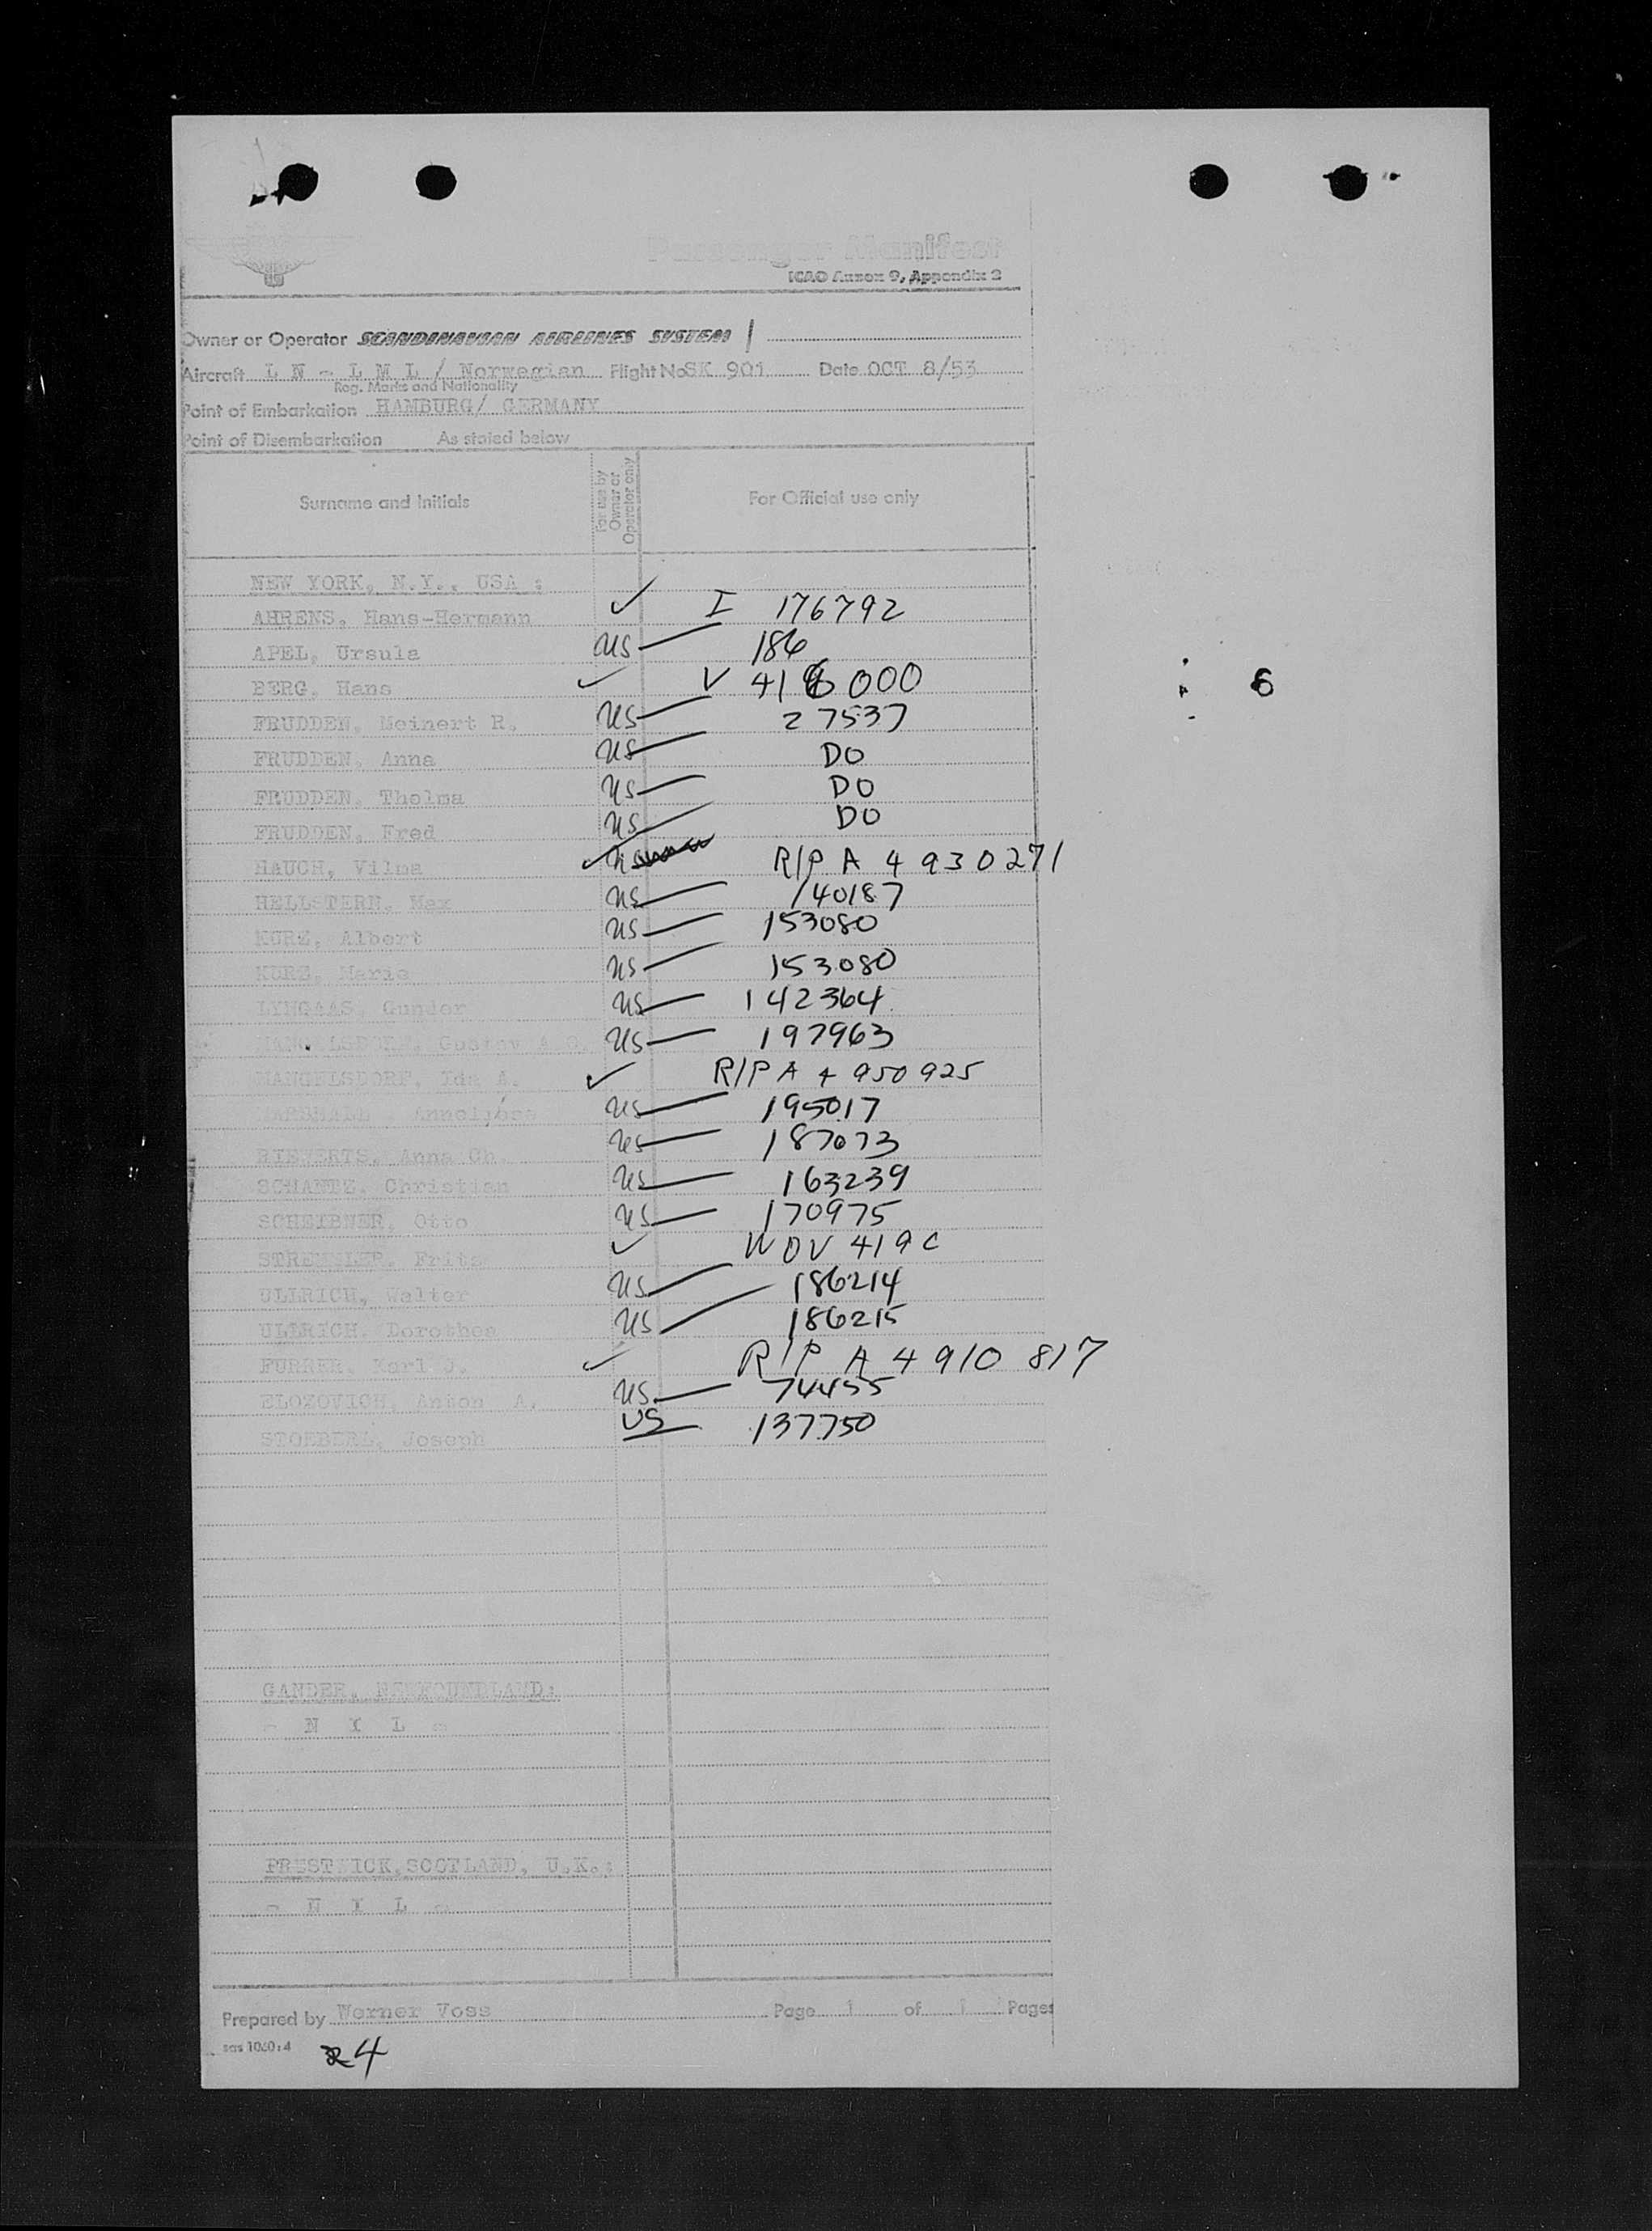 Passenger Manifest
ICAO Annex 9, Appendix 2
Owner or Operator SCANDINAVIAN AIRLINES SYSTEM
Aircraft L N - L M L / Norwegian Flight No SK 901 Date OCT 8/53
Reg. Marks and Nationality
Point of Embarkation HAMBURG/ GERMANY
Point of Disembarkation As stated below
Surname and Initials For use by Owner or Operator only For Official use only
NEW YORK, N.Y., USA :
AHRENS, Hans-Hermann ✓ I 176792
APEL, Ursula US 186
BERG, Hans ✓ V 416000
6
FRUDDEN, Meinert R. US 27537
FRUDDEN, Anna US DO
FRUDDEN, Thelma US DO
FRUDDEN, Fred US DO
HAUCH, Vilma ✓ R/P A 4 930271
HELLSTERN, Max US 140187
KURZ, Albert US 153080
KURZ, Maria US 153080
LYNGAAS, Gunder US 142364
MANGELSDORF, Gustav A.O. US 197963
MANGELSDORF, Ida A. ✓ R/P A 4 950925
MARSHALL, US 195017
SIEVERTS, Anna Ch. US 187073
SCHANTZ, Christian US 163239
SCHEIBNER, Otto US 170975
Fritz ✓ WOV 419 C
ULLRICH, Walter US 186214
ULLRICH, Dorothea US 186215
FURRER, Karl J. ✓ R/P A 4 910 817
ELOZOVICH, Anton A. US 74455
STOEBERL, Joseph US 137750
GANDER, NEWFOUNDLAND:
- N I L -
PRESTWICK,SCOTLAND, U.K.:
- N I L -
Prepared by Werner Voss Page 1 of 1 Pages
sas 1060:4 24